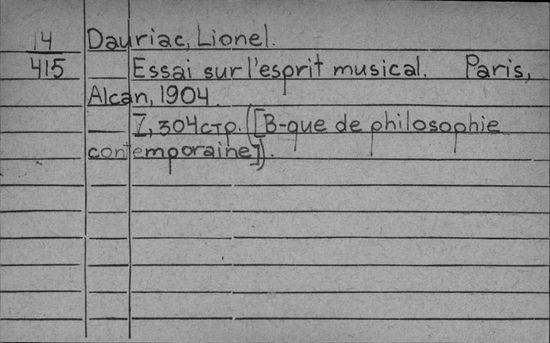 14 Dauriac, Lionel.
415 Essai sur l'esprit musical. Paris,
Alcan, 1904.
I, 304стр. ([B-que de philosophie
contemporaine]).